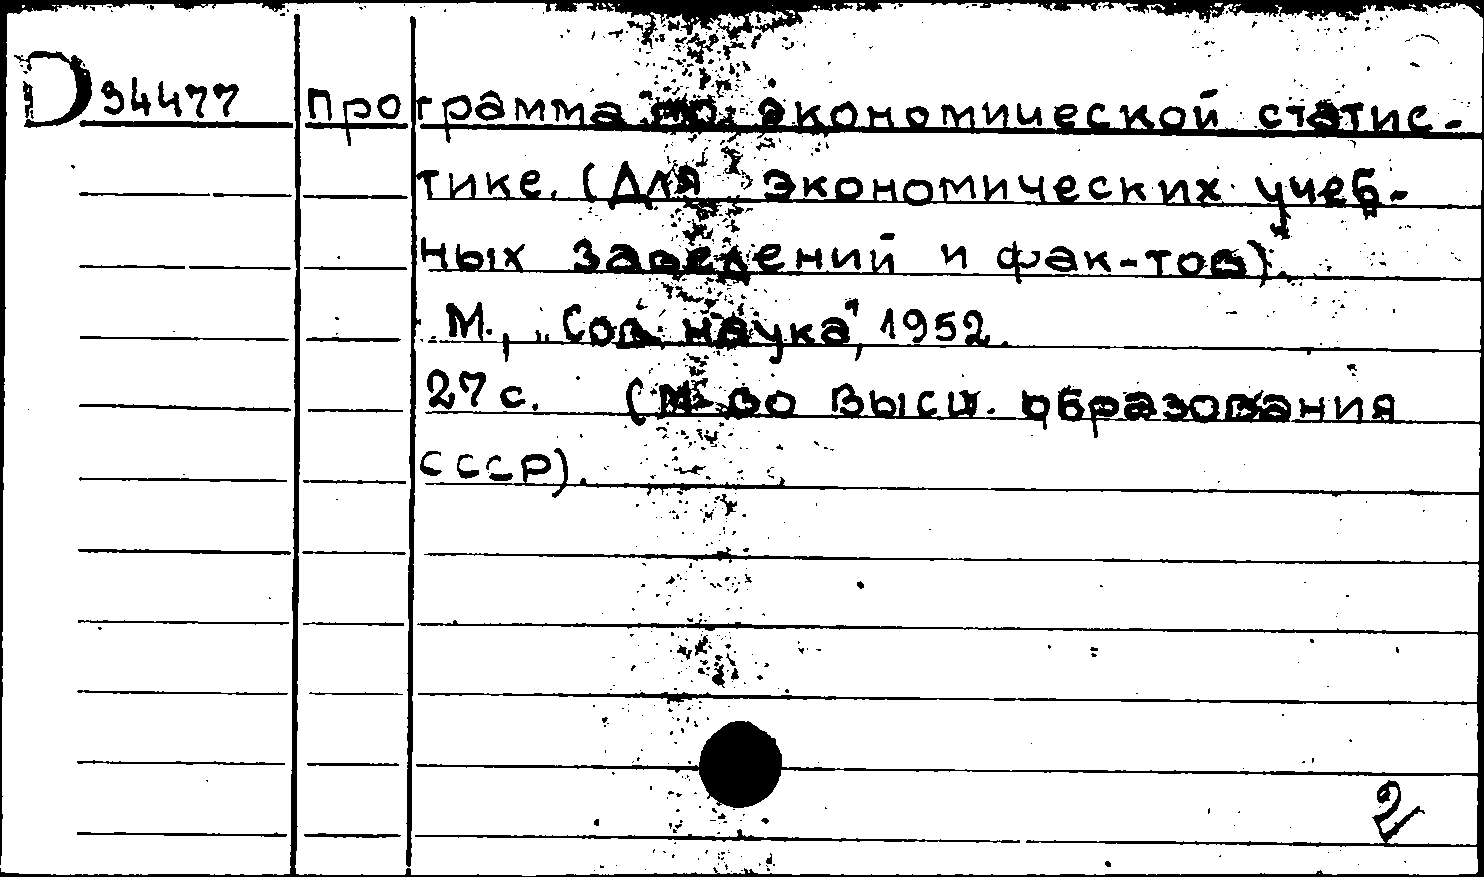 D 34477 Программа по экономической статис-
тике. (Для экономических учеб-
ных заведений и фак-тов).
М., „Сов. наука", 1952.
27 с. (М-во высш. образования
СССР).
2